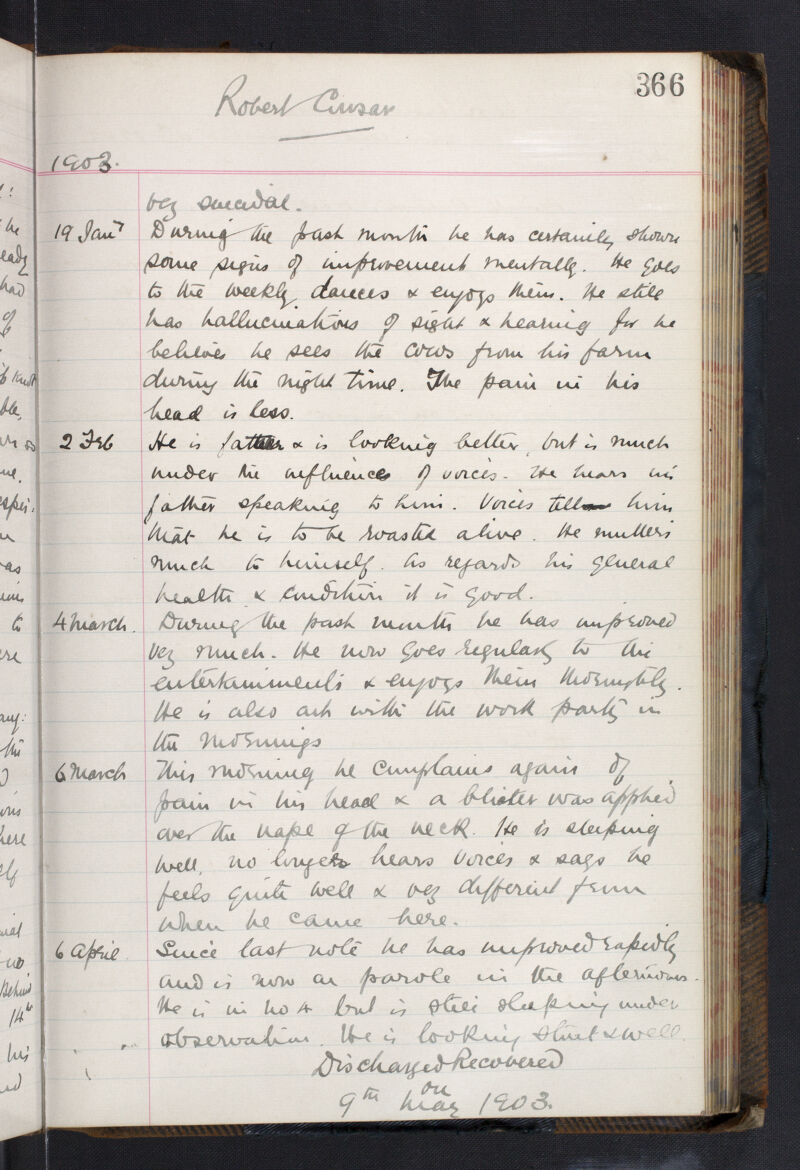 366
Robert
1903.
very suicidal.
19 Jany During the past month he has certainly shown
some signs of improvement mentally. He goes
to the weekly dances & enjoys them. He still
has hallucinations of sight & hearing for he
believes he sees the cows from his farm
during the night time. The pain in his
head is less.
2 Feb He is fatter & is looking better, but is much
under the influence of voices. He hears his
father speaking to him. Voices tell him
that he is to be roasted alive. He mutters
much to himself. As regards his general
health & condition it is good.
4 March. During the past month he has improved
very much. He now goes regularly to the
entertainments & enjoys them thoroughly.
He is also out with the work party in
the mornings
6 March This morning he complains again of
pain in his head & a blister was applied
over the nape of the neck. He is sleeping
well, no longer hears voices & says he
feels quite well & very different from
when he came here.
6 April Since last note he has improved rapidly
and is now on parole in the afternoons.
He is in no 4 but is still sleeping under
observation. He is looking stout & well.
Discharged Recovered
on
9th May 1903.